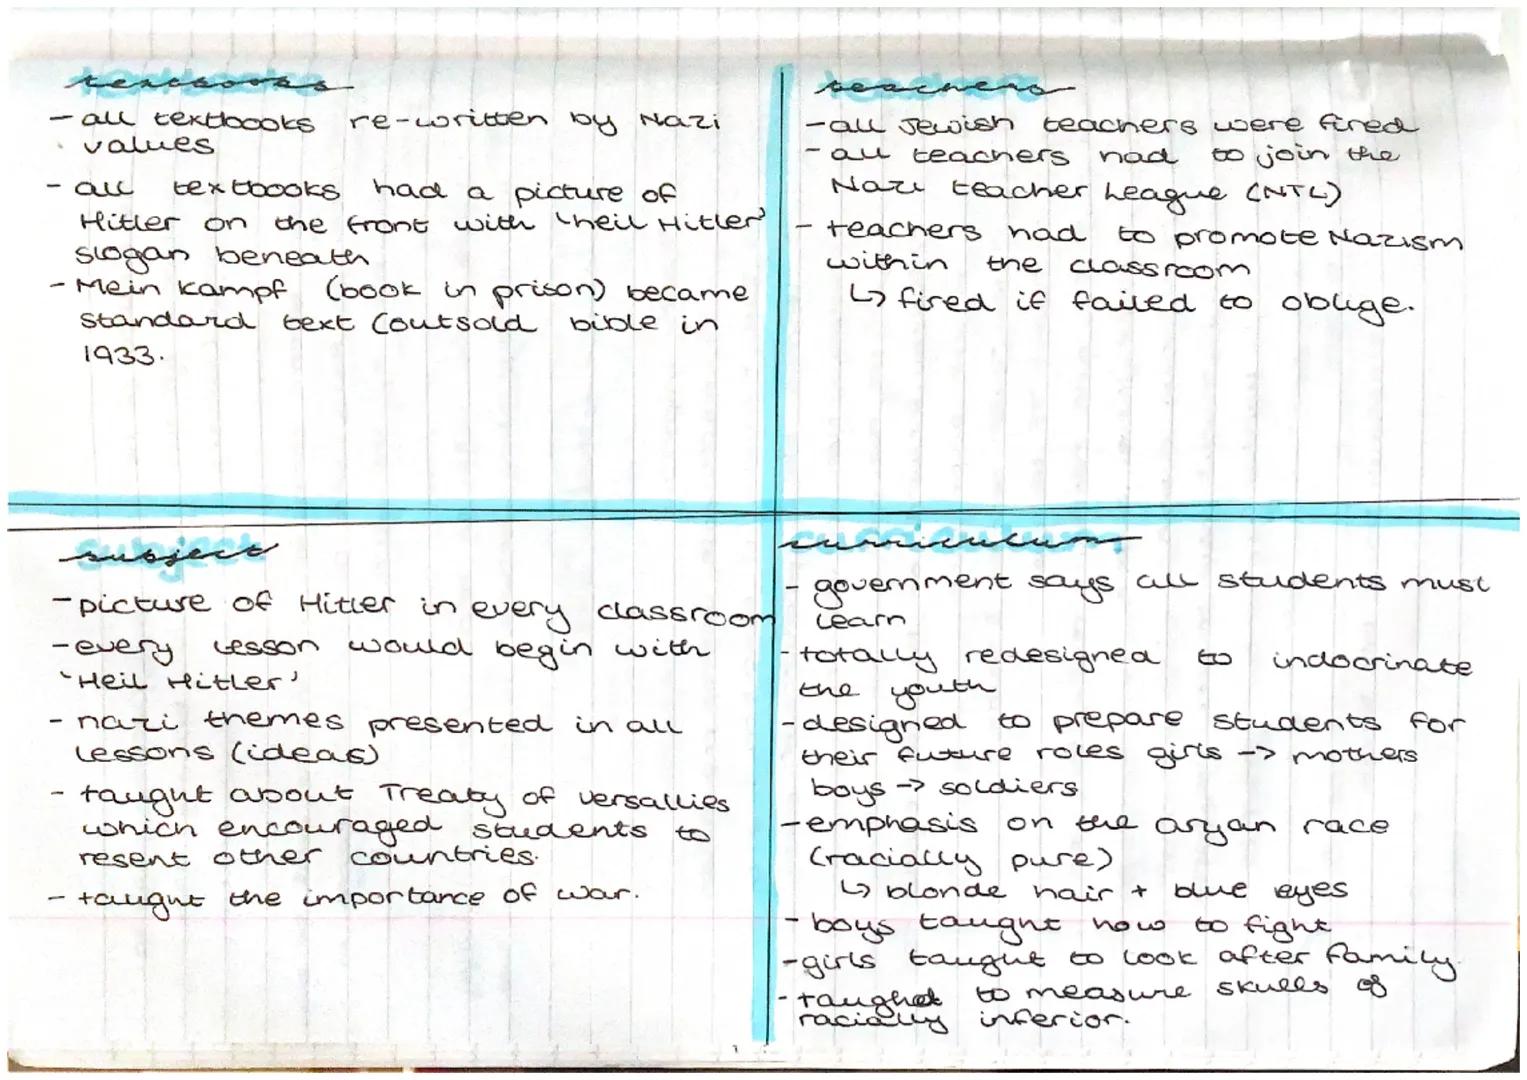 textbooks
- all textbooks re-written by Nazi
values
- all textbooks had a picture of
Hitler on the front with 'heil Hitler'
slogan beneath
- Mein Kampf (book in prison) became
standard text (outsold bible in
1933.
teachers
- all Jewish teachers were fired
- all teachers had to join the
Nazi teacher League (NTL)
- teachers had to promote Nazism
within the classroom
↳ fired if failed to oblige.
subject
- picture of Hitler in every classroom
- every lesson would begin with
'Heil Hitler'
- nazi themes presented in all
lessons (ideas)
- taught about Treaty of versallies
which encouraged students to
resent other countries.
- taught the importance of war.
curriculum
- government says all students must
learn
- totally redesigned to indocrinate
the youth
- designed to prepare students for
their future roles girls -> mothers
boys -> soldiers
- emphasis on the aryan race
(racially pure)
↳ blonde hair + blue eyes
- boys taught how to fight
- girls taught to look after family.
- taughet to measure skulls of
racially inferior.